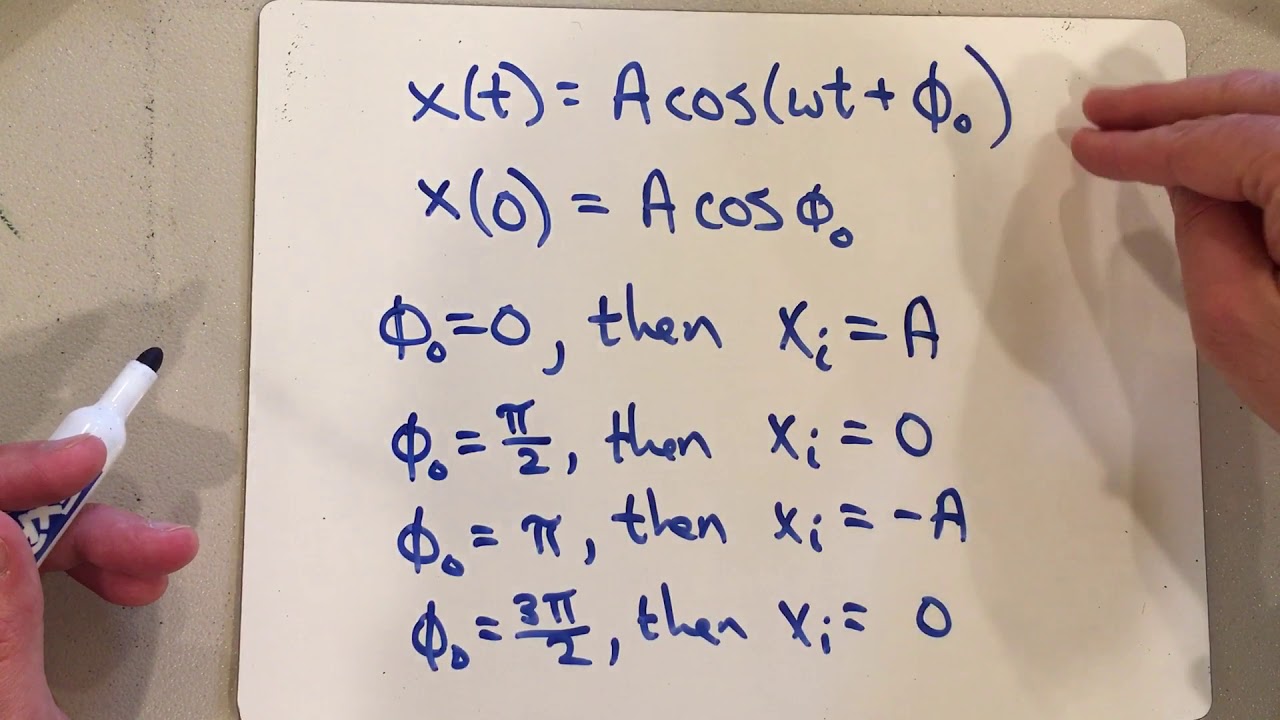 x(t) = A cos(ωt + ϕ₀)
x(0) = A cos ϕ₀
ϕ₀ = 0, then xᵢ = A
ϕ₀ = π/2, then xᵢ = 0
ϕ₀ = π, then xᵢ = -A
ϕ₀ = 3π/2, then xᵢ = 0